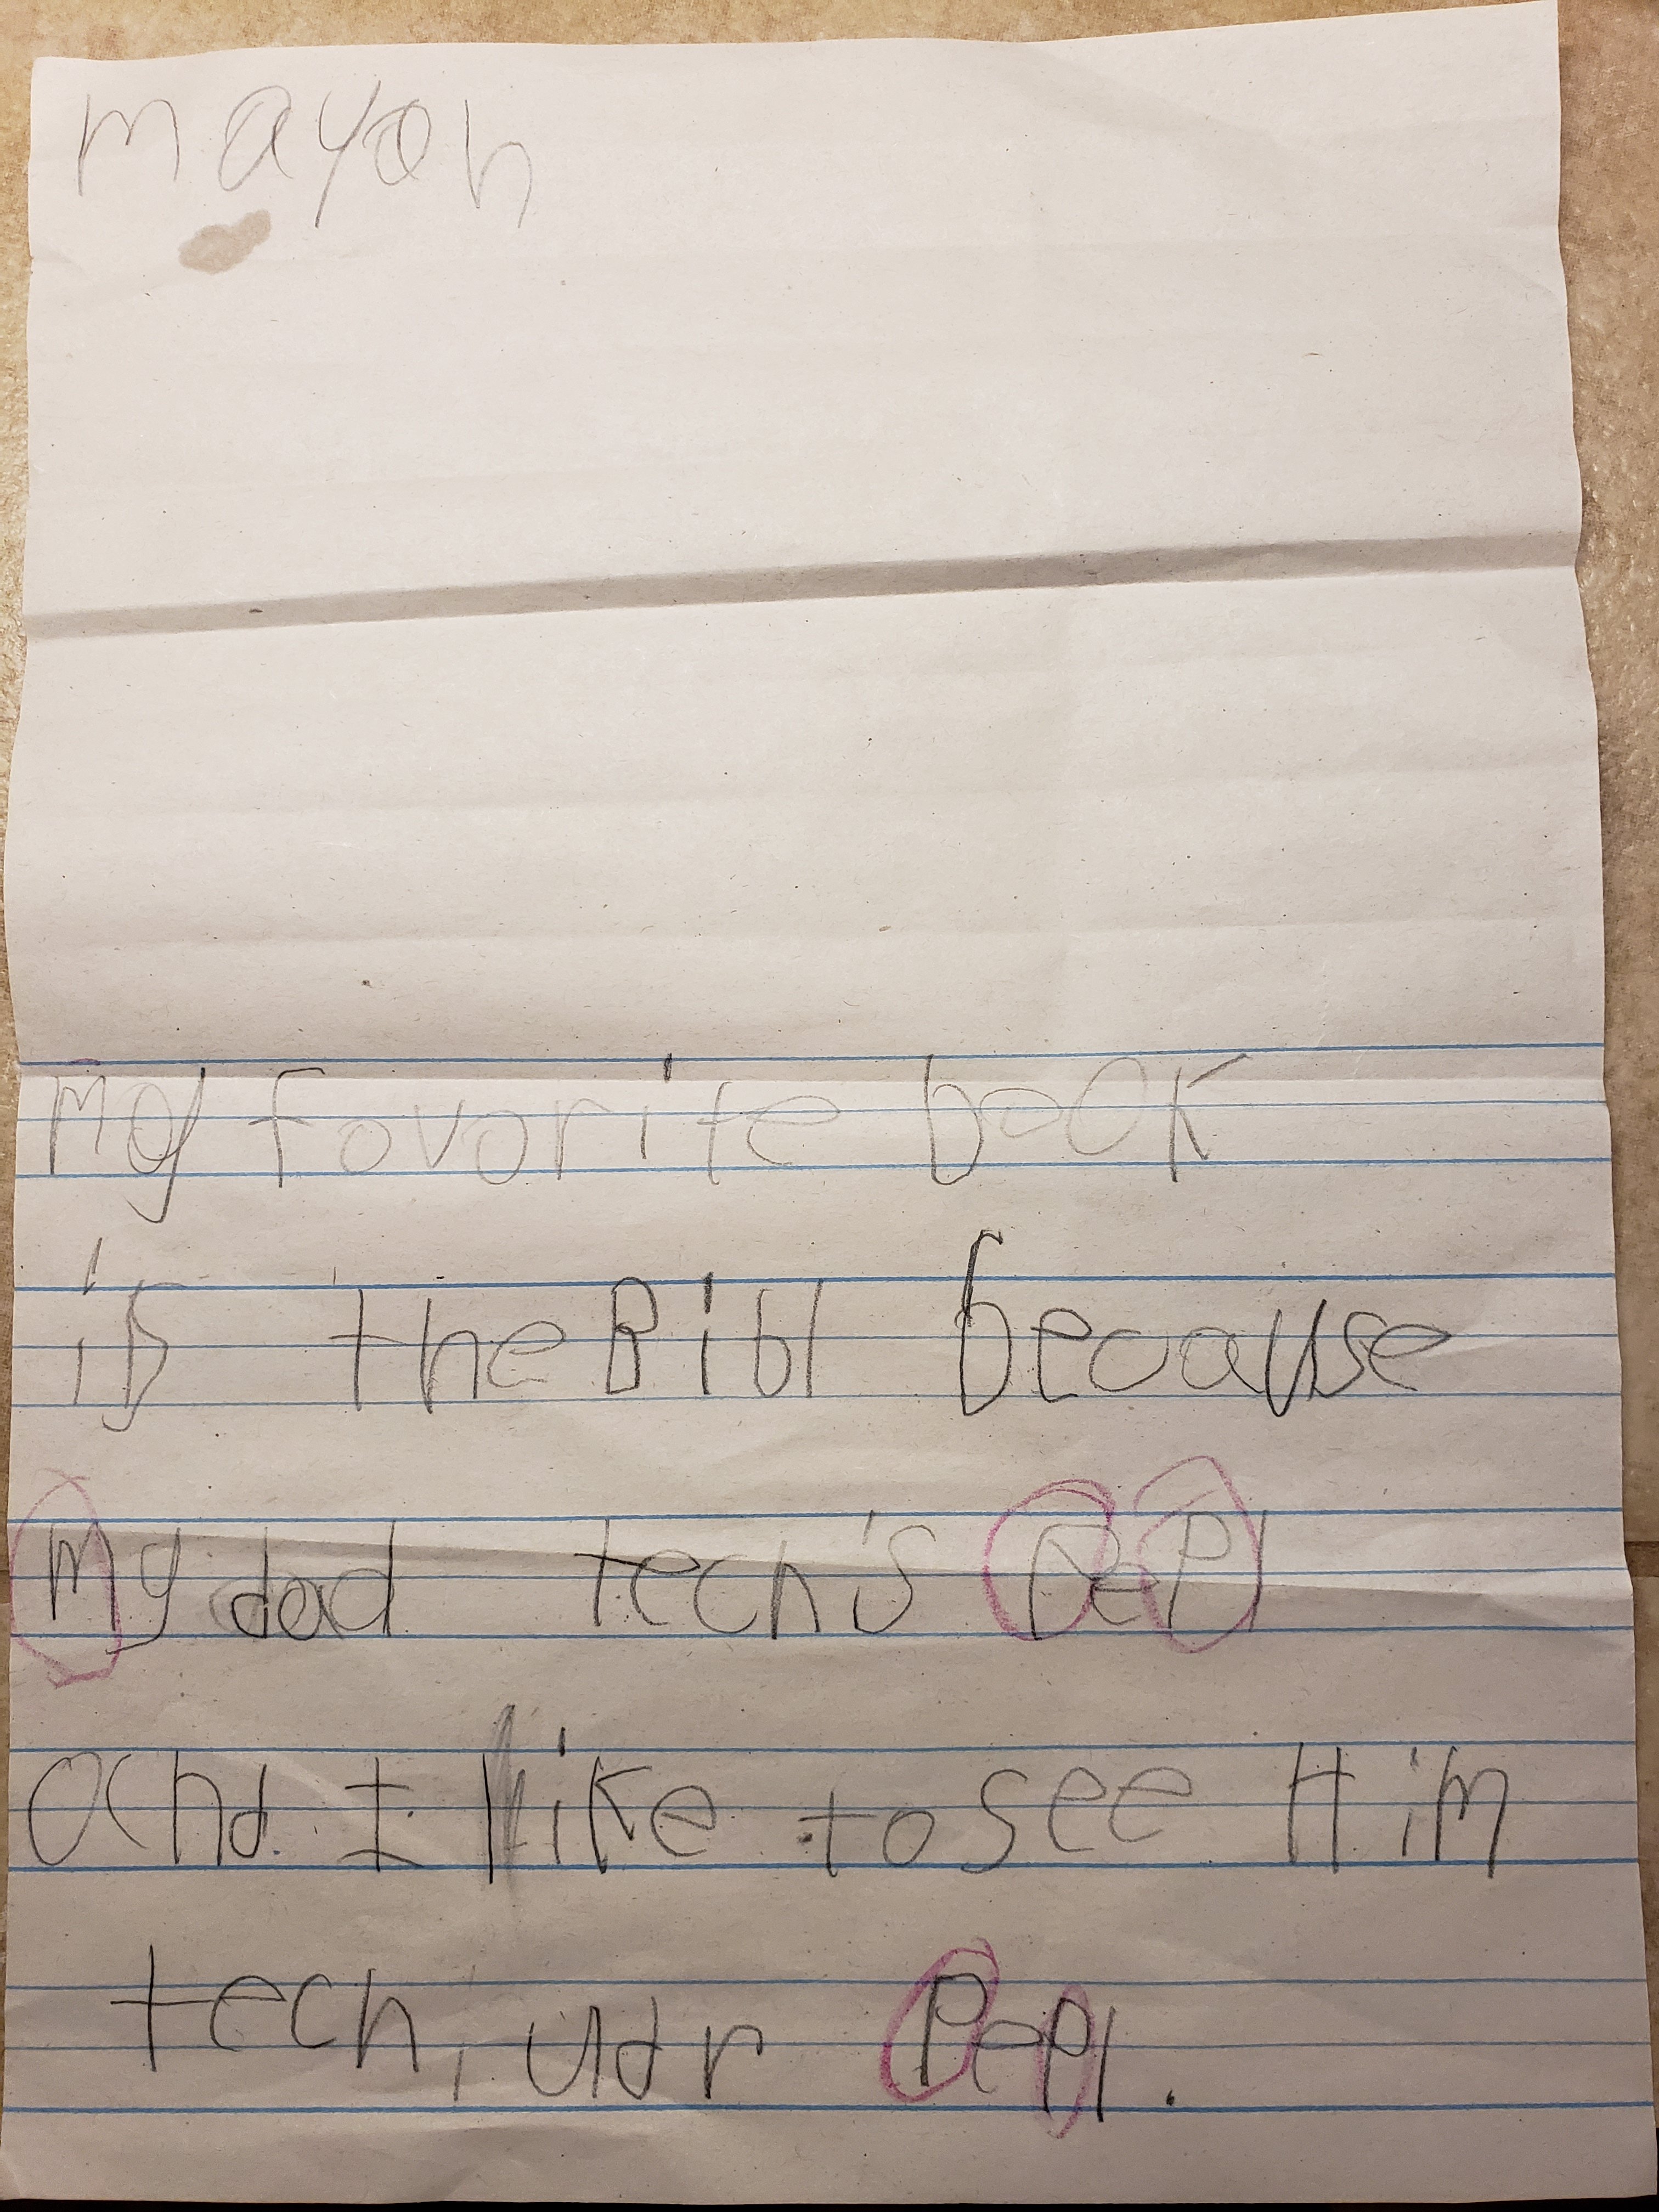 mayon
My favorite book
is the Bibl because
My dad tech's PePl
and. I like to see Him
tech, udr PePl.